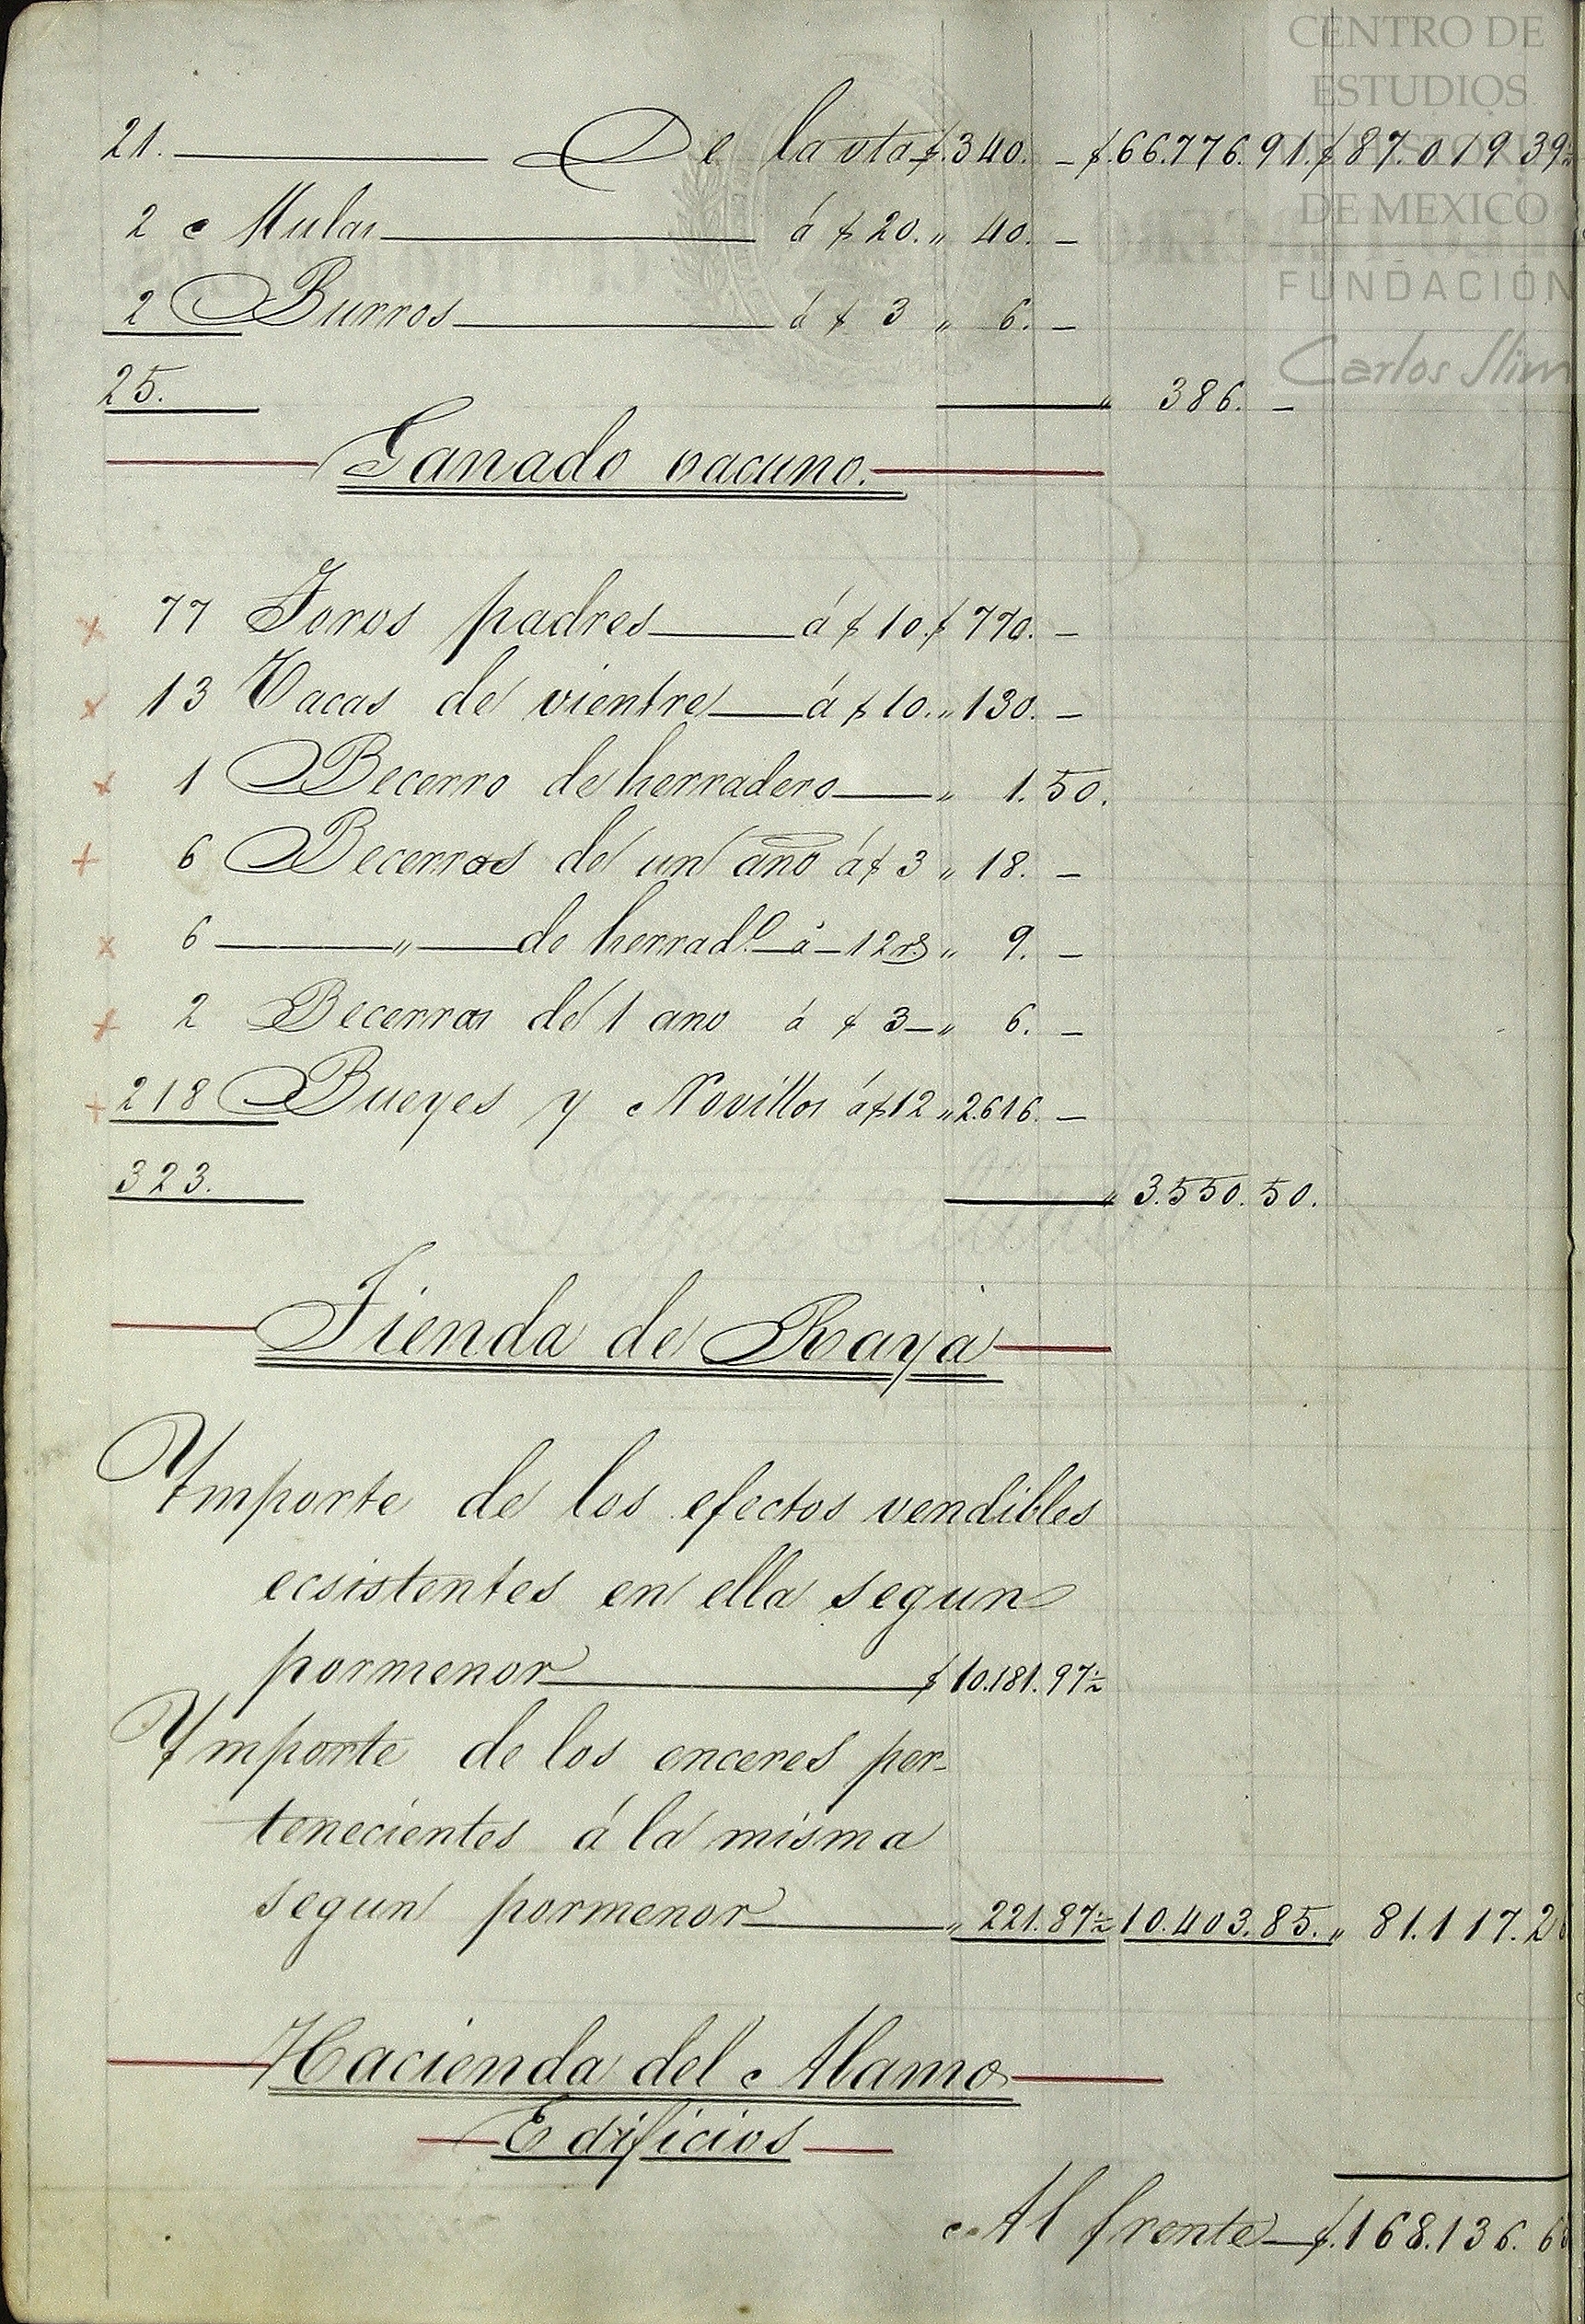 CENTRO DE
ESTUDIOS
DE HISTORIA
DE MEXICO
FUNDACIÓN
Carlos Slim
21. De la vta $.340. - $.66.776.91. $87.019 39
2 Mulas á $ 20. " 40. -
2 Burros á $ 3 " 6. -
25. " 386. -
Ganado vacuno.
77 Toros padres á $ 10. $ 770. -
13 Vacas de vientre á $ 10. " 130. -
1 Becerro de herradero " 1.50.
6 Becerros de un año á $ 3 " 18. -
6 " de herrad.o á - 12 rs " 9. -
2 Becerras de 1 ano á $ 3 - " 6. -
218 Bueyes y Novillos á $ 12 " 2.616. -
323. " 3.550.50.
Tienda de Raya
Ymporte de los efectos vendibles
ecsistentes en ella segun
pormenor $ 10.181.97½
Ymporte de los enceres per-
tenecientes á la misma
segun pormenor " 221.87½ 10.403.85. " 81.117.2
Hacienda del Alamo
Edificios
Al frente $.168.136.6